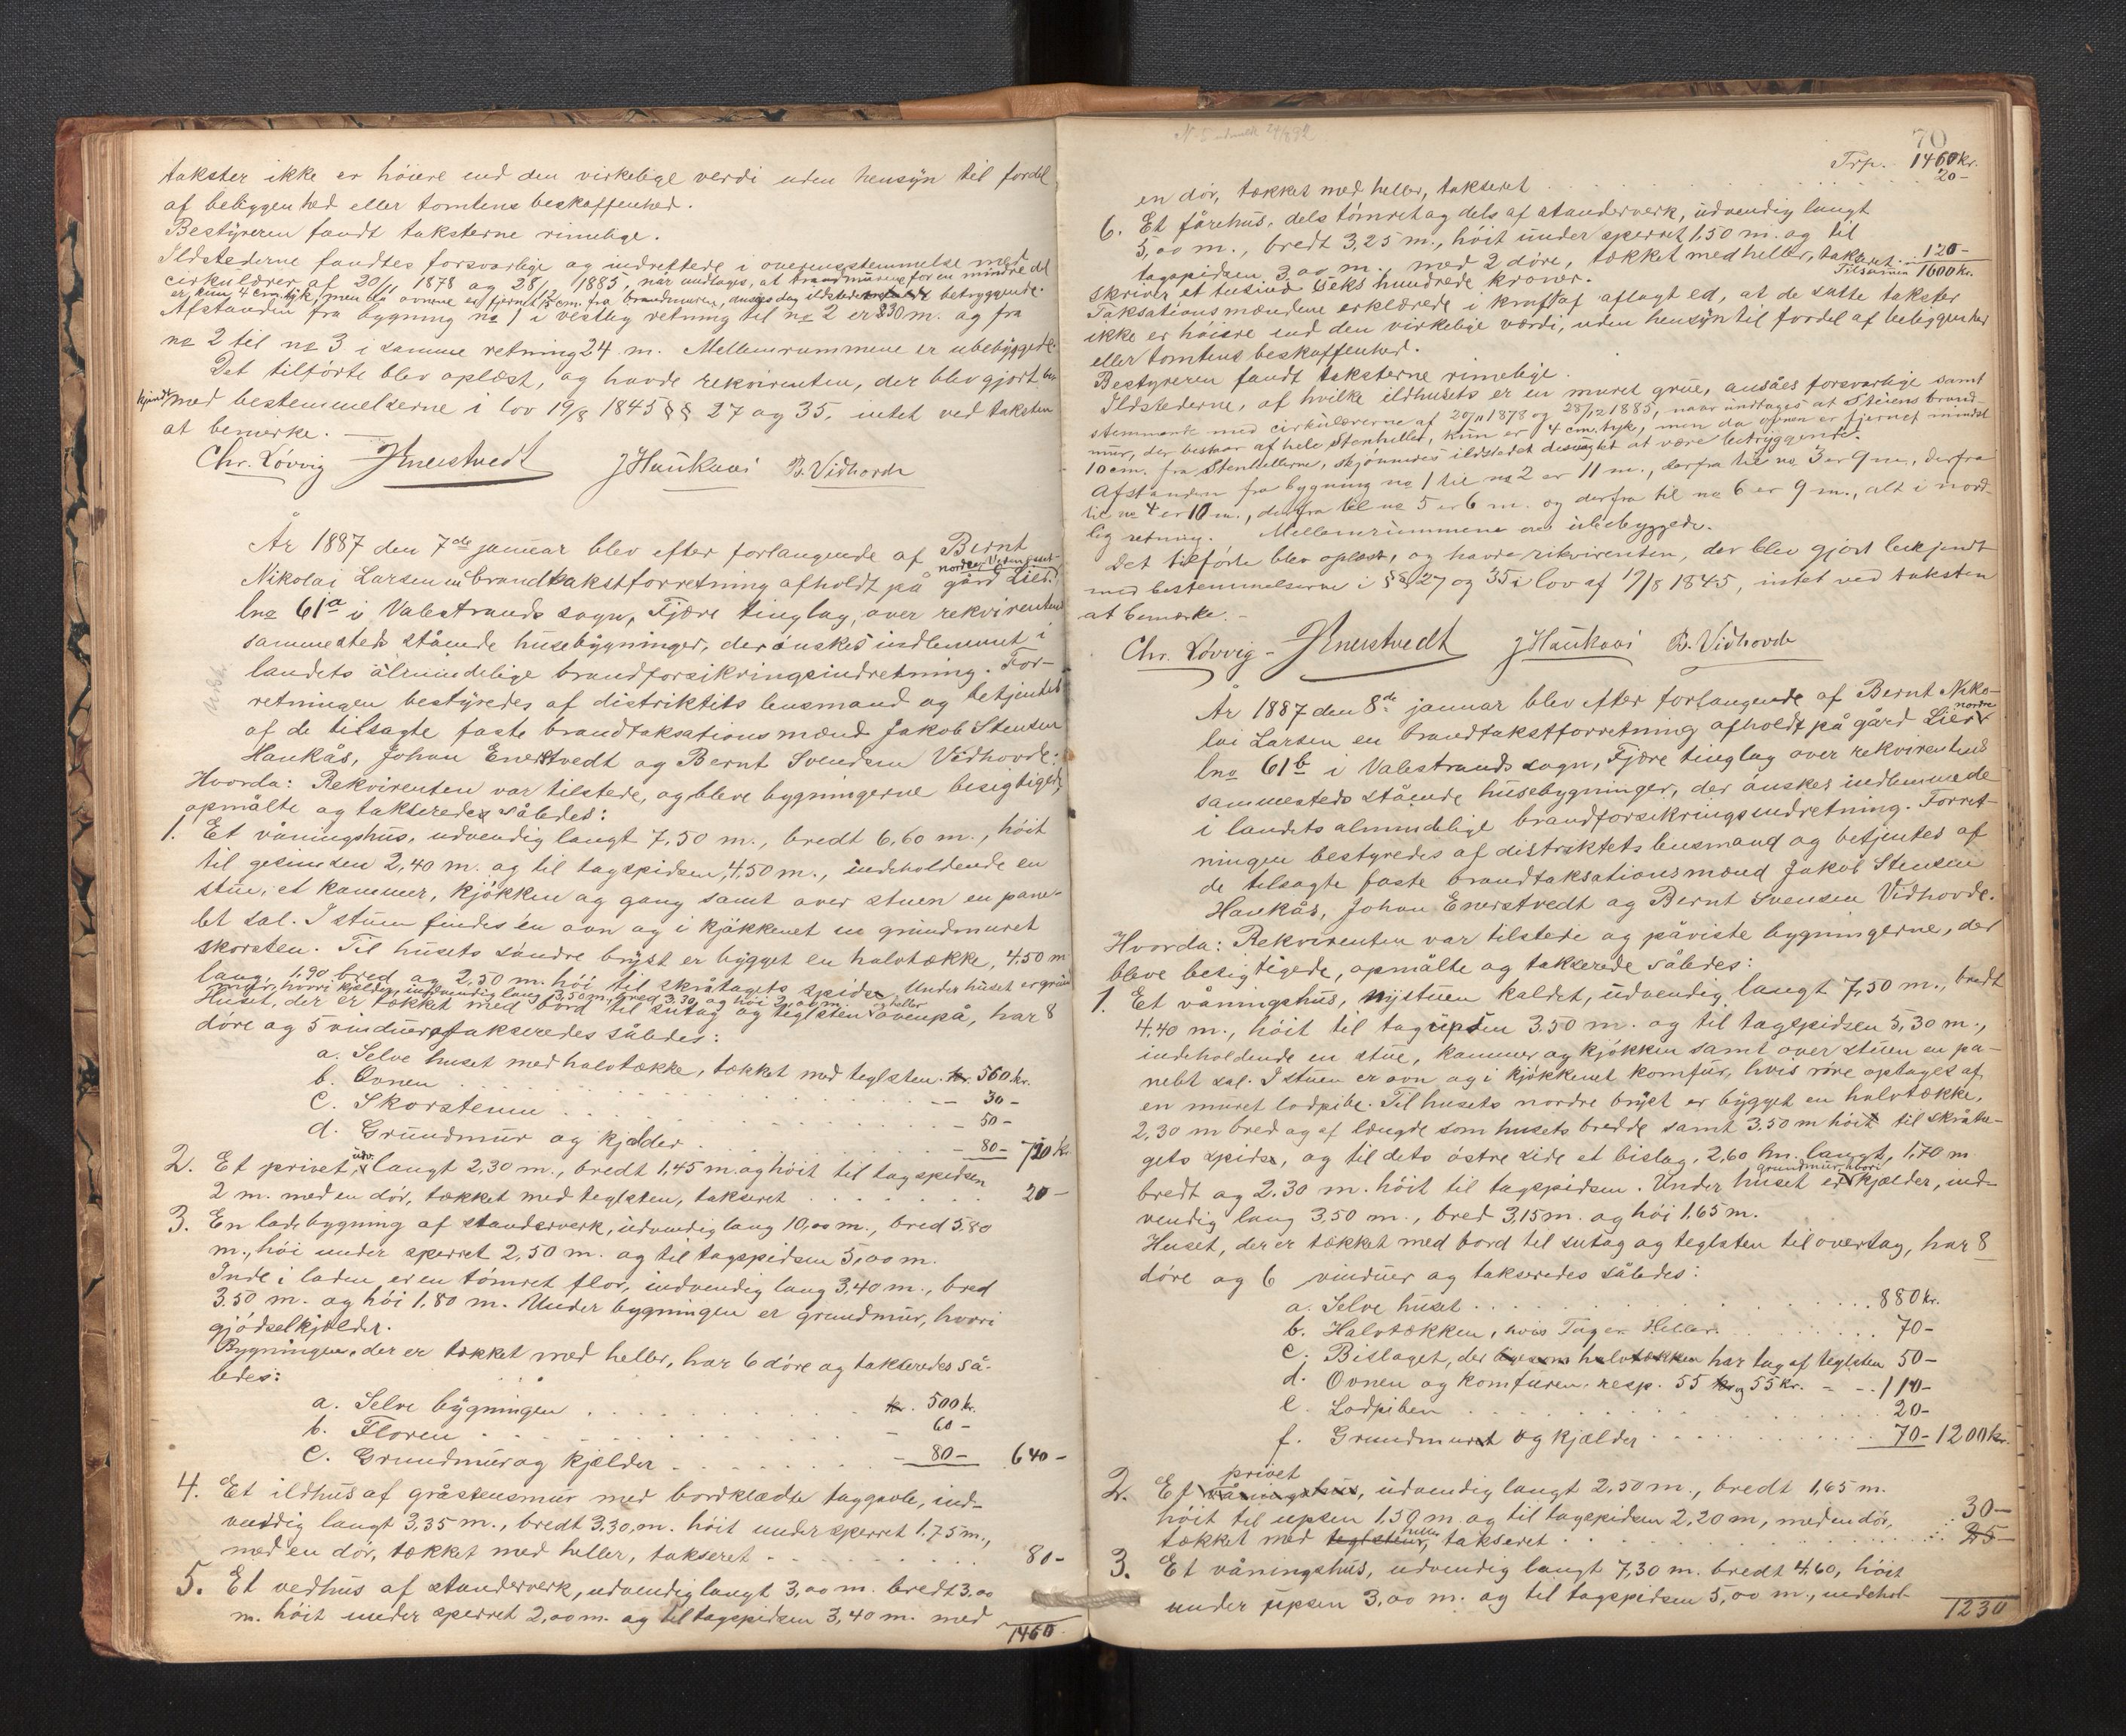 takster ikke er höiere end den virkelige verdi uden hensyn til fordel
af beliggenhed eller tomtens beskaffenhed.
Bestyreren fandt taksterne rimelige.
Ildstederne fandtes forsvarlige og indrettede i overensstemmelse med
cirkulærer af 20/11 1878 og 28/12 1885, når undtages, at brandmurene for en mindre del
er kun 4 cm. tyk, men da ovnene er fjernet 15 cm. fra brandmuren, ansåes dog ildstederne betryggende.
Afstanden fra bygning no 1 i vestlig retning til no 2 er 830 m. og fra
no 2 til no 3 i samme retning 24 m. Mellemrummene er ubebyggede.
Det tilförte blev oplæst, og havde rekvirenten, der blev gjort be-
kjendt med bestemmelserne i lov 19/8 1845 §§ 27 og 35, intet ved taksten
at bemerke.
Chr. Lövvig JEnerstvedt JHaukaas B. Vidhovde
År 1887 den 7de januar blev efter forlangende af Bernt
Nikolai Larsen en brandtakstforretning afholdt på gård nordre Lier,
lno 61a i Valestrands sogn, Fjære tinglag, over rekvirentens
sammesteds stående husebygninger, der önskes indlemmet i
landets almindelige brandforsikringsindretning. For-
retningen bestyredes af distriktets lensmand og betjentes
af de tilsagte faste brandtaksationsmænd Jakob Stensen
Haukås, Johan Enerstvedt og Bernt Svendsen Vidhovde:
Hvorda: Rekvirenten var tilstede, og bleve bygningerne besigtigede,
opmålte og takserede således:
1. Et våningshus, udvendig langt 7,50 m., bredt 6,60 m., höit
til gesimsen 2,40 m. og til tagspidsen 4,50 m., indeholdende en
stue, et kammer, kjökken og gang samt over stuen en pane-
let sal. I stuen findes en ovn og i kjökkenet en grundmuret
skorsten. Til husets söndre bryst er bygget en halvtække, 4,50 m
lang, 1,90 bred og 2,50 m. höi til skråtagets spidse. Under huset er grund-
mur, hvori kjelder, indvendig lang 3,50 m, bred 3,30 og höi 2,00 m.
Huset, der er tækket med bord til sutag og teglsten og heller ovenpå, har 8
döre og 5 vinduer, takseredes således:
a. Selve huset med halvtække, tækket med teglsten kr. 560 kr.
b. Ovnen . . . 30 –
c. Skorstenen . . . 50 –
d. Grundmur og kjelder . . . 80 – 720 kr
2. Et privet, udv. langt 2,30 m., bredt 1,45 m. og höit til tagspidsen
2 m. med en dör, tækket med teglsten, takseret . . . 20 –
3. En ladebygning af standerverk, udvendig lang 10,00 m., bred 5,80
m., höi under sperret 2,50 m. og til tagspidsen 5,00 m.
Inde i laden er en tömret flor, indvendig lang 3,40 m., bred
3,50 m. og höi 1,80 m. Under bygningen er grundmur, hvori
gjödselkjelder.
Bygningen, der er tækket med heller, har 6 döre og takseredes så-
ledes:
a. Selve bygningen . . . kr. 500 kr.
b. Floren . . . 60 –
c. Grundmur og kjelder . . . 80 – 640 –
4. Et ildhus af gråstensmur med bordklædte taggavle, ind-
vendig langt 3,35 m., bredt 3,30, m. höit under sperret 1,75 m.,
med en dör, tækket med heller, takseret . . . 80 –
5. Et vedhus af standerverk, udvendig langt 3,00 m. bredt 3,00
m. höit under sperret 2,00 m. og til tagspidsen 3,40 m. med
1460
70
Trp. 1460 kr.
en dör, tækket med heller, takseret . . . 20 –
6. Et fårehus, dels tömret og dels af standerverk, udvendig langt
5,00 m., bredt 3,25 m., höit under sperret 1,50 m. og til
tagspidsen 3,00 m., med 2 döre, tækket med heller, takseret . . . 120 –
Tilsammen 1600 kr.
skriver et tusind seks hundrede kroner.
Taksationsmændene erklærede i kraft af aflagt ed, at de satte takster
ikke er höiere end den virkelige værdi, uden hensyn til fordel af beliggenhed
eller tomtens beskaffenhed.
Bestyreren fandt taksterne rimelige.
Ildstederne, af hvilke ildhusets er en muret grue, ansåes forsvarlige samt
stemmende med cirkulærerne af 20/11 1878 og 28/12 1885, naar undtages at Stuens brand-
mur, der bestaar af hele Stenheller, kun er 4 cm. tyk, men da ovnen er fjernet mindst
10 cm. fra Stenhellerne, skjönnedes ildstedet desuagtet at være betryggende.
Afstanden fra bygning no 1 til no 2 er 11 m., derfra til no 3 er 9 m., derfra
til no 4 er 10 m., derfra til no 5 er 6 m. og derfra til no 6 er 9 m., alt i nord-
lig retning. Mellemrummene ere ubebyggede.
Det tilförte blev oplæst, og havde rekvirenten, der blev gjort bekjendt
med bestemmelserne i §§ 27 og 35 i lov af 19/8 1845, intet ved taksten
at bemærke. –
Chr. Lövvig – JEnerstvedt JHaukaas B. Vidhovde
År 1887 den 8de januar blev efter forlangende af Bernt Niko-
lai Larsen en brandtakstforretning afholdt på gård nordre Lier
lno 61b i Valestrands sogn, Fjære tinglag over rekvirentens
sammesteds stående husebygninger, der önskes indlemmede
i landets almindelige brandforsikringsindretning. Forret-
ningen bestyredes af distriktets lensmand og betjentes af
de tilsagte faste brandtaksationsmænd Jakob Stensen
Haukås, Johan Enerstvedt og Bernt Svensen Vidhovde.
Hvorda: Rekvirenten var tilstede og påviste bygningerne, der
bleve besigtigede, opmålte og takserede således:
1. Et våningshus, nystuen kaldet, udvendig langt 7,50 m., bredt
4,40 m., höit til tagupsen 3,50 m. og til tagspidsen 5,30 m.,
indeholdende en stue, kammer og kjökken samt over stuen en pa-
nelet sal. I stuen er ovn og i kjökkenet komfur, hvis röre optages af
en muret lodpibe. Til husets nordre bryst er bygget en halvtække,
2,30 m bred og af længde som husets bredde samt 3,50 m höi til skråta-
gets spidse, og til dets östre side et bislag, 2,60 m. langt, 1,70 m
bredt og 2,30 m. höit til tagspidsen. Under huset er grundmur, hvori kjælder, ind-
vendig lang 3,50 m., bred 3,15 m. og höi 1,65 m.
Huset, der er tækket med bord til sutag og teglsten til overtag, har 8
döre og 6 vinduer og takseredes således:
a. Selve huset . . . 880 kr.
b. Halvtækken, hvis Tag er Heller . . . 70 –
c. Bislaget, der ligesom halvtækken har tag af teglsten 50 –
d. Ovnen og komfuren resp. 55 kr og 55 kr. – – 110 –
e. Lodpiben . . . 20 –
f. Grundmur og kjælder . . . 70 – 1200 kr.
2. Et våningshus privet, udvendig langt 2,50 m., bredt 1,65 m.
höit til upsen 1,50 m og til tagspidsen 2,20 m, med en dör, 30 –
tækket med teglstener, heller takseret . . . 25 –
3. Et våningshus, udvendig langt 7,30 m. bredt 4,60, höit
under upsen 3,00 m. og til tagspidsen 5,00 m., indehol-
1230